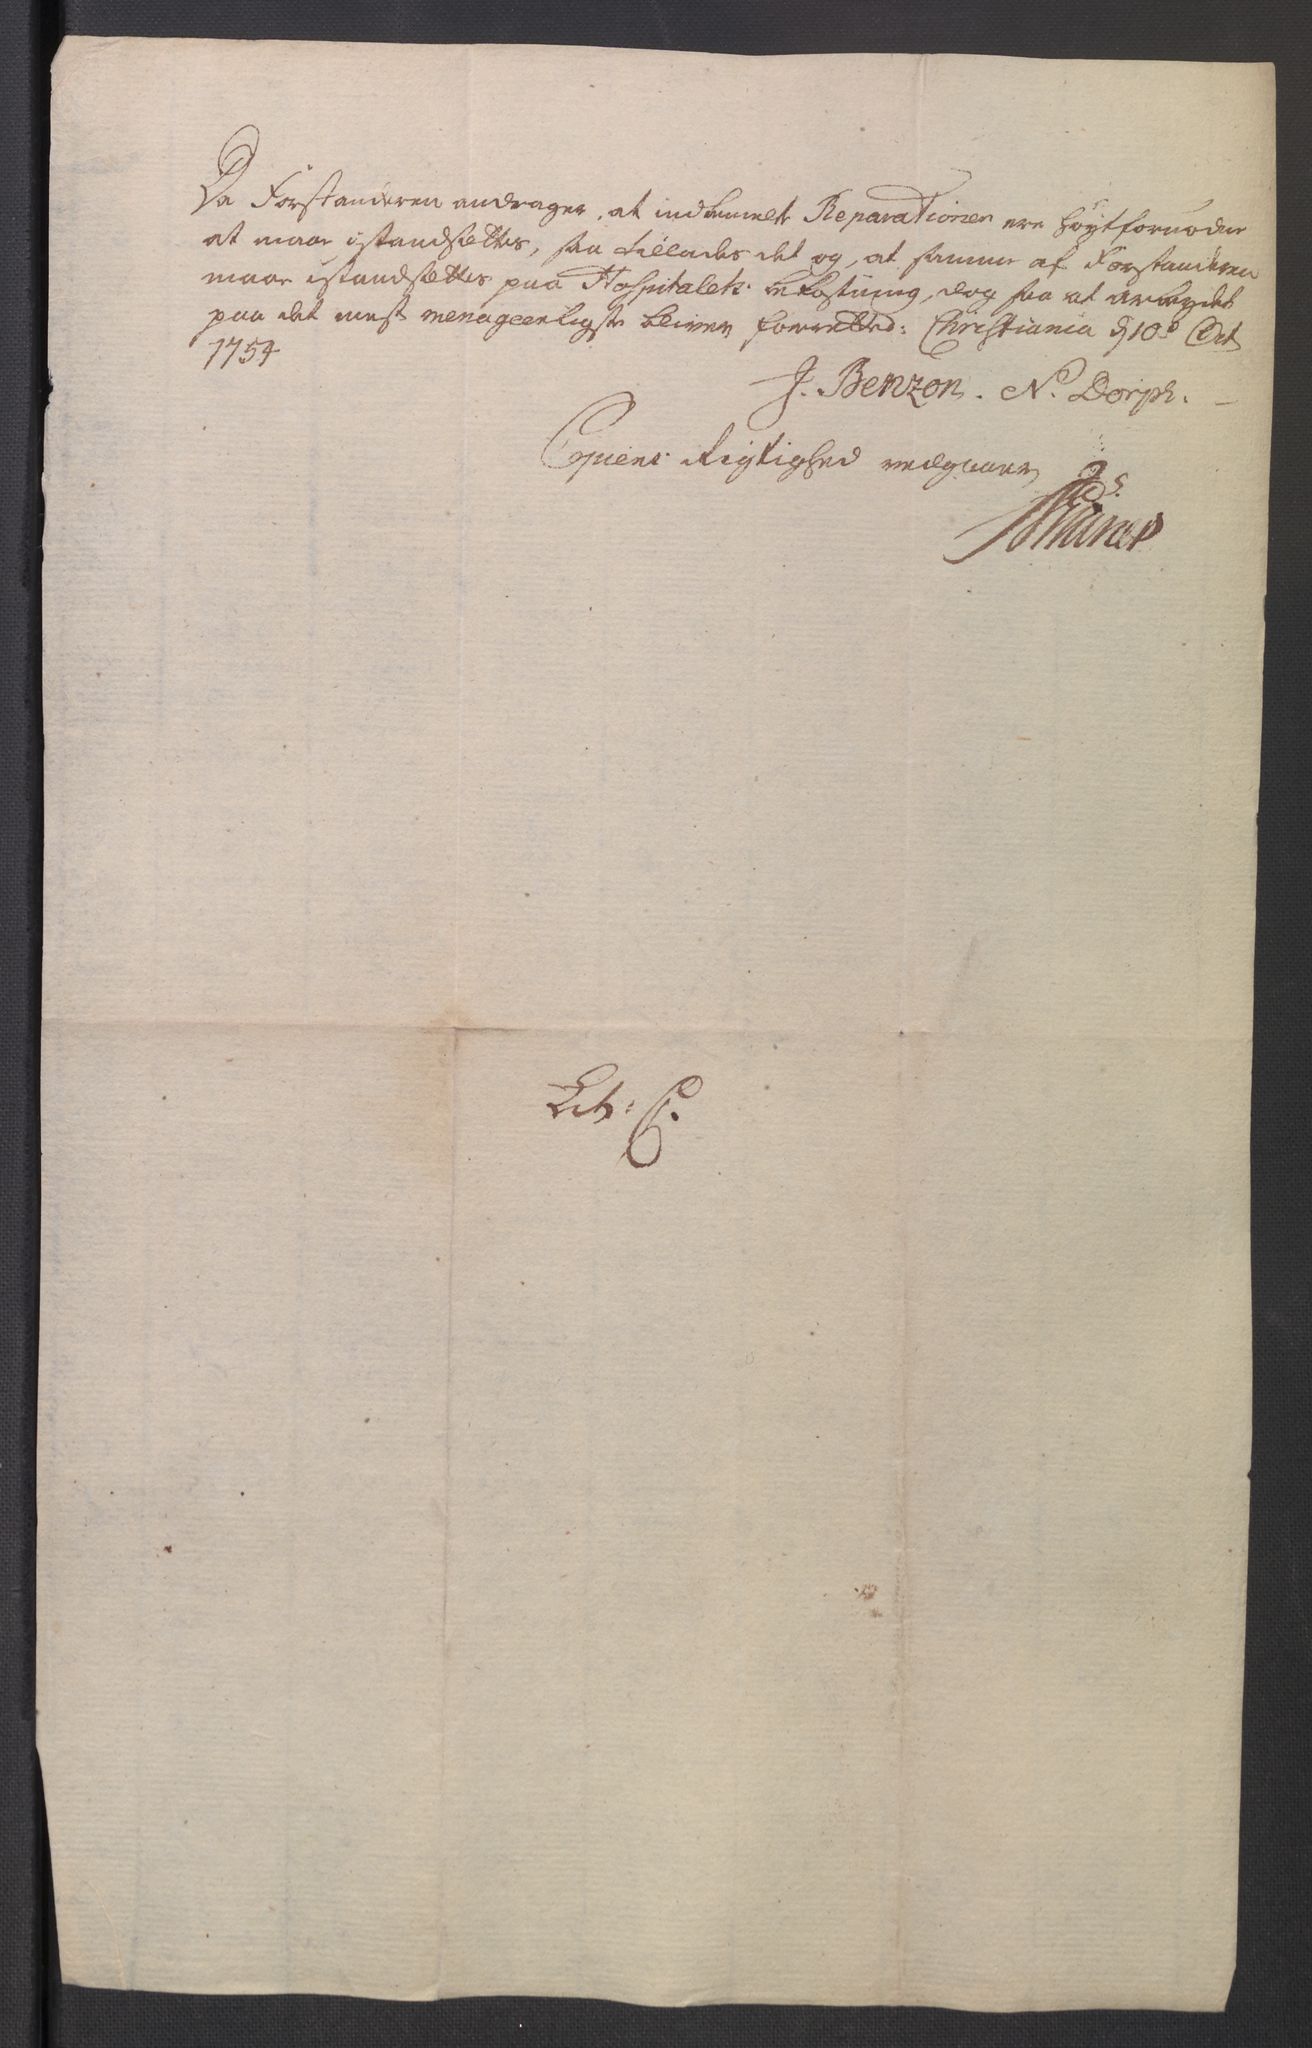 Da Forstanderen andrager, at indbemelte Reparationer ere høytfornøden
at maae istandsættes, saa tillades det og, at samme af Forstanderen
maae istandsættes paa Hospitalets bekostning, dog saa at arbeydet
paa det mest menageerligste bliver forrettet: Christiania d 10de Oct
1754
J. Benzon. N. Dorph.
Copiens Rigtighed vedgaaer
Lit: C.